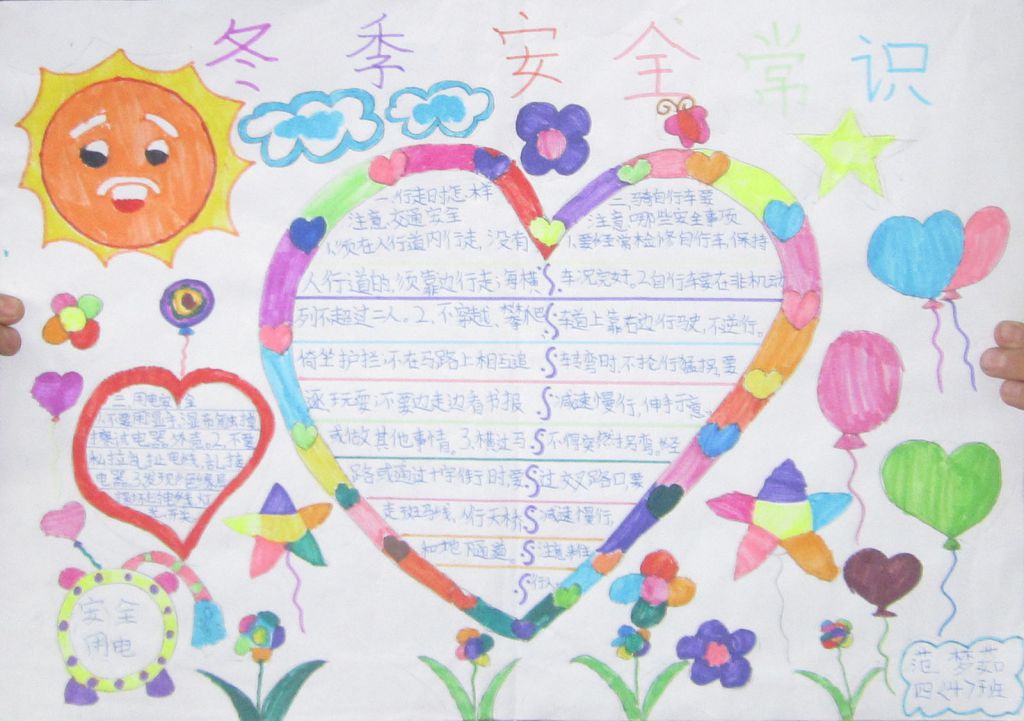 冬季安全常识
一.行走时怎样
注意交通安全
1.须在人行道内行走,没有
人行道的,须靠边行走;每横
列不超过二人。2、不穿越、攀爬
倚坐护拦;不在马路上相互追
逐、玩耍;不要边走边看书报
或做其他事情。3.横过马
路或通过十字街时,要
走斑马线、人行天桥
和地下隧道。
二.骑自行车要
注意哪些安全事项
1.要经常检修自行车,保持
车况完好。2.自行车要在非机动
车道上靠右边行驶,不逆行。
车转弯时,不抢行猛拐,要
减速慢行,伸手示意。
不得突然拐弯。经
过交叉路口,要
减速慢行,
注意来往
行人。
三.用电安全
1.不要用湿手,湿布触摸
擦试电器外壳。2.不要
私拉乱扯电线,乱接
电器。3.发现
安全
用电
范梦茹
四<4>班